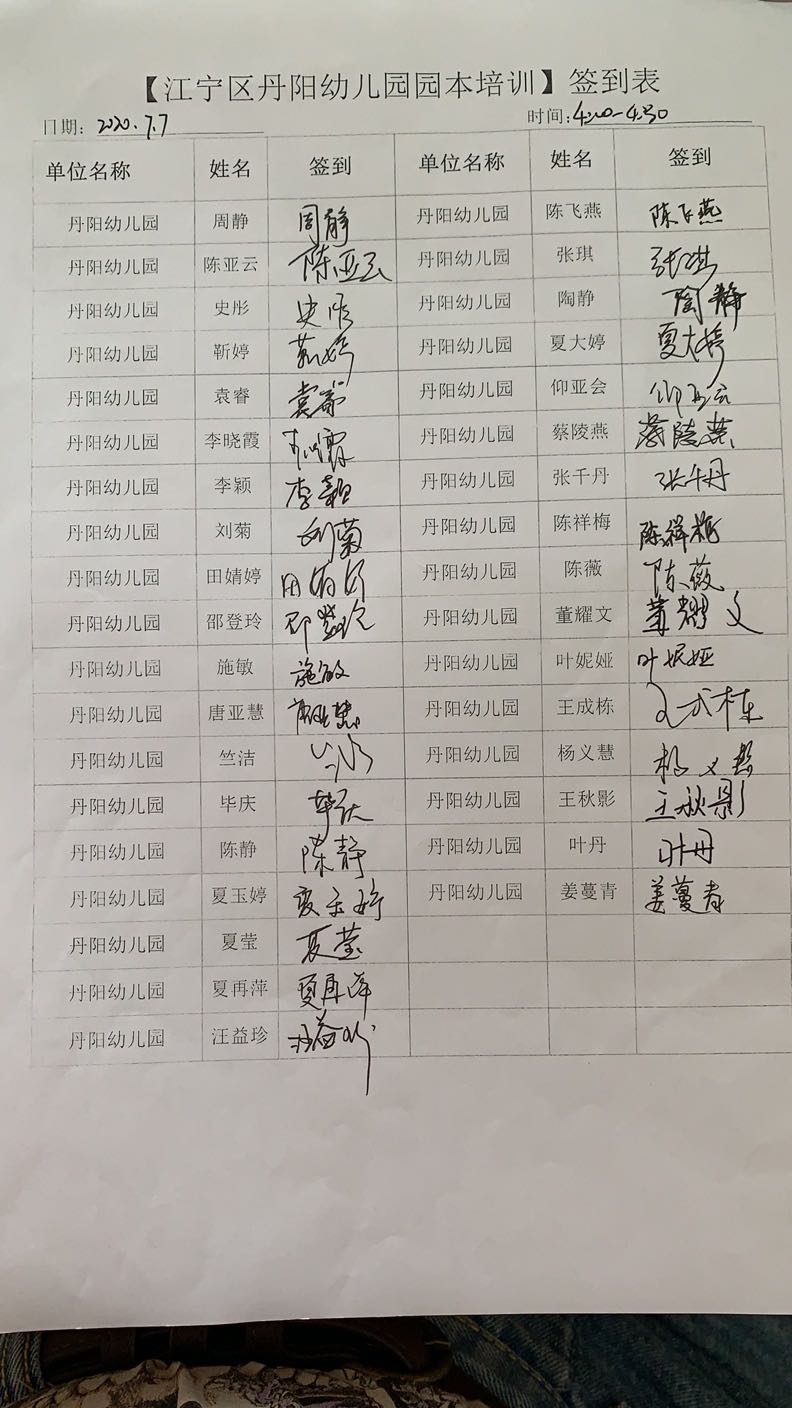 【江宁区丹阳幼儿园园本培训】签到表
日期：2020.7.7 时间：4:00-4:30
单位名称 姓名 签到 单位名称 姓名 签到
丹阳幼儿园 周静 周静 丹阳幼儿园 陈飞燕 陈飞燕
丹阳幼儿园 陈亚云 陈亚云 丹阳幼儿园 张琪 张琪
丹阳幼儿园 史彤 史彤 丹阳幼儿园 陶静 陶静
丹阳幼儿园 靳婷 靳婷 丹阳幼儿园 夏大婷 夏大婷
丹阳幼儿园 袁睿 袁睿 丹阳幼儿园 仰亚会 仰亚会
丹阳幼儿园 李晓霞 李晓霞 丹阳幼儿园 蔡陵燕 蔡陵燕
丹阳幼儿园 李颖 李颖 丹阳幼儿园 张千丹 张千丹
丹阳幼儿园 刘菊 刘菊 丹阳幼儿园 陈祥梅 陈祥梅
丹阳幼儿园 田婧婷 田婧婷 丹阳幼儿园 陈薇 陈薇
丹阳幼儿园 邵登玲 邵登玲 丹阳幼儿园 董耀文 董耀文
丹阳幼儿园 施敏 施敏 丹阳幼儿园 叶妮娅 叶妮娅
丹阳幼儿园 唐亚慧 唐亚慧 丹阳幼儿园 王成栋 王成栋
丹阳幼儿园 竺洁 竺洁 丹阳幼儿园 杨义慧 杨义慧
丹阳幼儿园 毕庆 毕庆 丹阳幼儿园 王秋影 王秋影
丹阳幼儿园 陈静 陈静 丹阳幼儿园 叶丹 叶丹
丹阳幼儿园 夏玉婷 夏玉婷 丹阳幼儿园 姜蔓青 姜蔓青
丹阳幼儿园 夏莹 夏莹
丹阳幼儿园 夏再萍 夏再萍
丹阳幼儿园 汪益珍 汪益珍